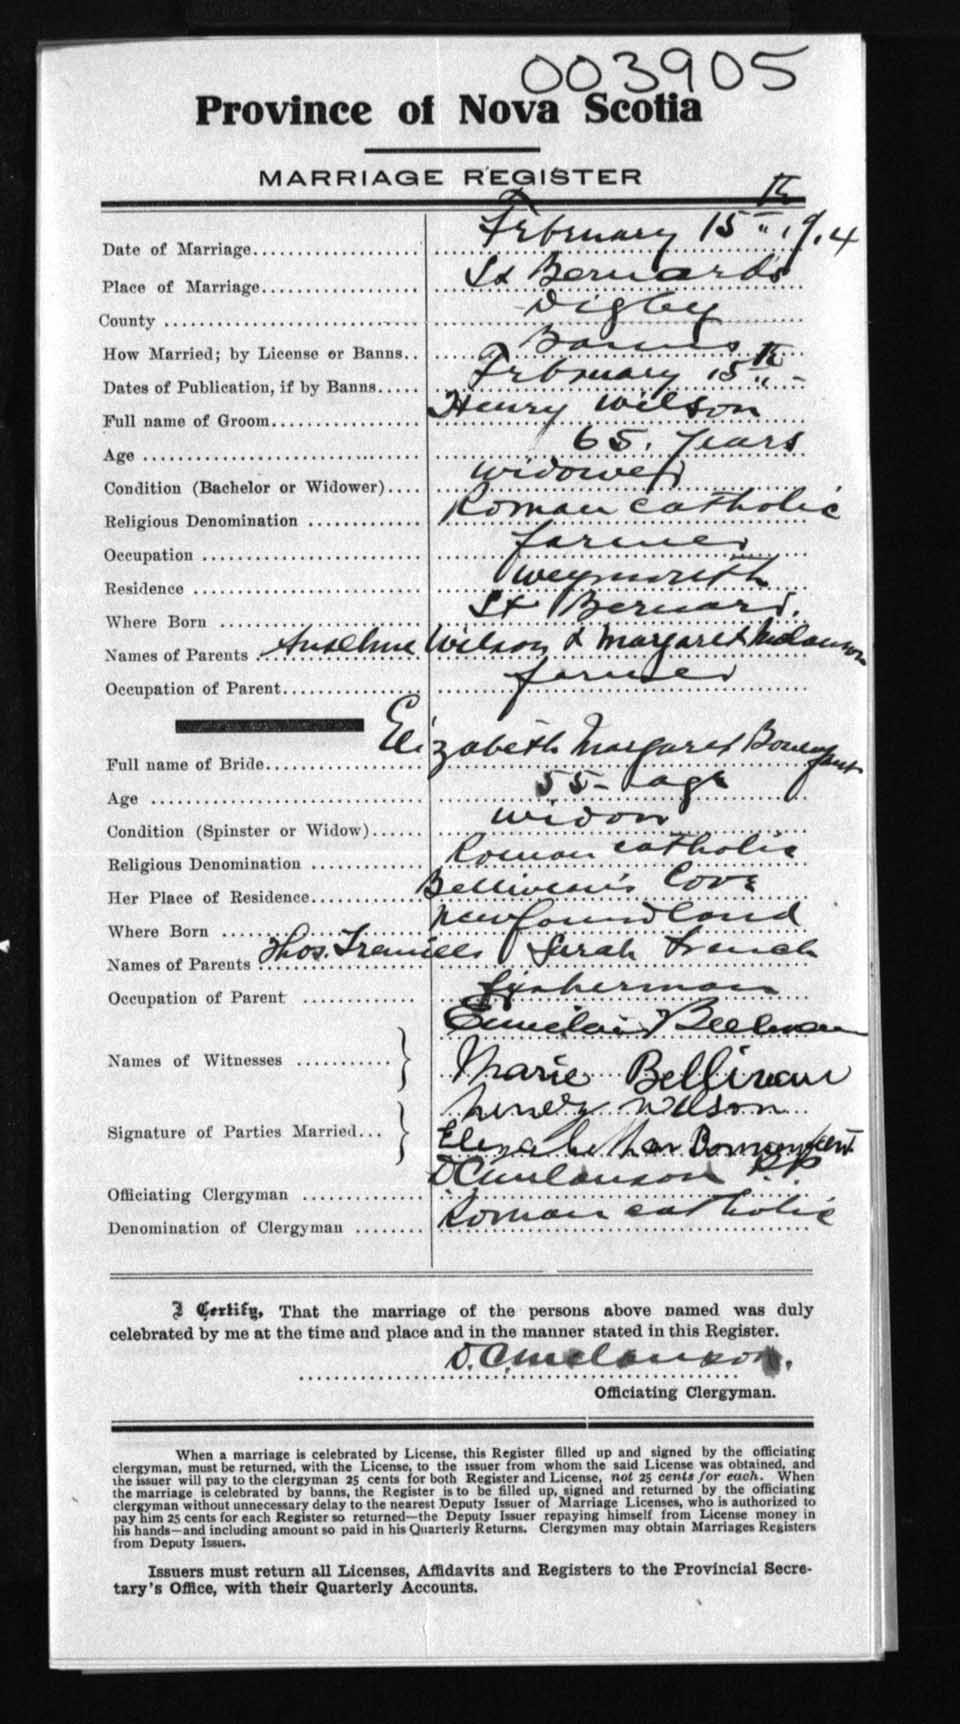 003905
Province of Nova Scotia
MARRIAGE REGISTER
Date of Marriage February 15th 1914
Place of Marriage St Bernard's
County Digby
How Married; by License or Banns Banns
Dates of Publication, if by Banns February 15th
Full name of Groom Henry Wilson
Age 65 years
Condition (Bachelor or Widower) widower
Religious Denomination Roman catholic
Occupation farmer
Residence Weymouth
Where Born St Bernard.
Names of Parents Anselme Wilson & Margaret Melanson
Occupation of Parent farmer
Full name of Bride Elizabeth Margaret Bonenfant
Age 55 - age
Condition (Spinster or Widow) widow
Religious Denomination Roman catholic
Her Place of Residence Belliveau's Cove
Where Born newfoundland
Names of Parents Thos. Sarah French
Occupation of Parent fisherman
Names of Witnesses
Marie Belliveau
Henry Wilson
Signature of Parties Married
D C Melanson P.P.
Officiating Clergyman
Denomination of Clergyman Roman catholic
I Certify, That the marriage of the persons above named was duly
celebrated by me at the time and place and in the manner stated in this Register.
D. C. Melanson.
Officiating Clergyman.
When a marriage is celebrated by License, this Register filled up and signed by the officiating
clergyman, must be returned, with the License, to the issuer from whom the said License was obtained, and
the issuer will pay to the clergyman 25 cents for both Register and License, not 25 cents for each. When
the marriage is celebrated by banns, the Register is to be filled up, signed and returned by the officiating
clergyman without unnecessary delay to the nearest Deputy Issuer of Marriage Licenses, who is authorized to
pay him 25 cents for each Register so returned—the Deputy Issuer repaying himself from License money in
his hands—and including amount so paid in his Quarterly Returns. Clergymen may obtain Marriages Registers
from Deputy Issuers.
Issuers must return all Licenses, Affidavits and Registers to the Provincial Secre-
tary's Office, with their Quarterly Accounts.